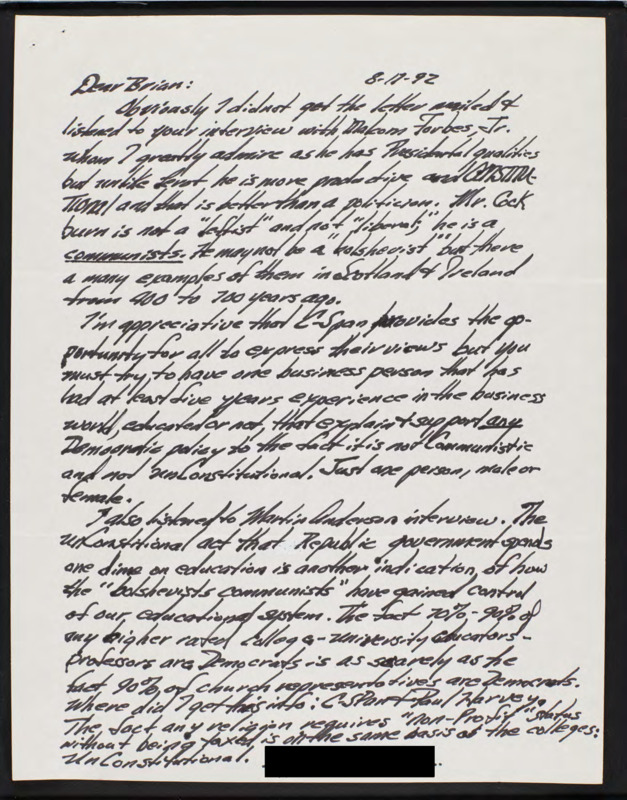 Dear Brian: 8-17-92
Obviously I did not get the letter mailed &
listened to your interview with Malcom Forbes, Jr.
whom I greatly admire as he has Presidental qualities
but unlike he is more productive and CONSTITU-
TIONAL and that is better than a politician. Mr. Cock
burn is not a "leftist" and not "liberal," he is a
communists. He may not be a "bolshevist" but there
a many examples of them in Scotland & Ireland
from 400 to 700 years ago.
I'm appreciative that C-Span provides the op-
portunity for all to express their views but you
must try, to have one business person that has
had at least five years experience in the business
world, educated or not, that explain & support any
Democratic policy to the fact it is not Communistic
and not UnConstitutional. Just one person, male or
female.
I also listened to Martin Anderson interview. The
UnConstitional act that Republic government spends
one dime on education is another indication, of how
the "bolshevists communists" have gained control
of our educational system. The fact 70%-90% of
any higher rated College-University Educators-
Professors are Democrats is as scarely as he
fact 90% of church representative's are Democrats.
Where did I get this info: C-SPAN & Paul Harvey.
The fact any religion requires "non-Profit" status
without being taxed is on the same basis of the colleges:
UnConstitutional.